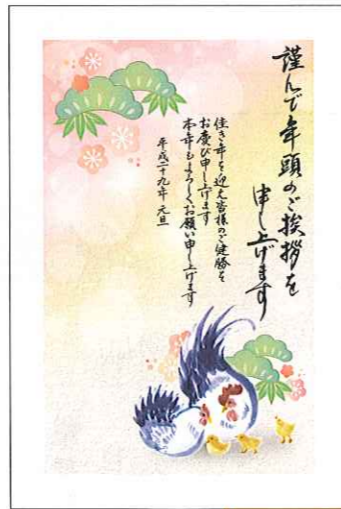 謹んで年頭のご挨拶を
申し上げます
佳き年を迎え皆様のご健勝を
お慶び申し上げます
本年もよろしくお願い申し上げます
平成二十九年 元旦